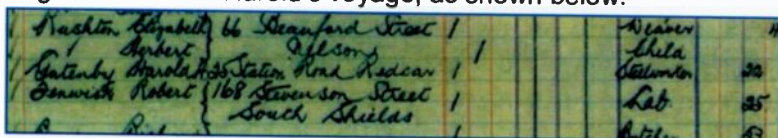 Harold's voyage, as shown below.
Rushton Elizabeth 66 Beauford Street 1 Weaver
Herbert Nelson 1 Child
Gatenby Harold A 35 Station Road Redcar 1 Steelworker 22
Fenwick Robert 168 Stevenson Street 1 Lab 25
South Shields